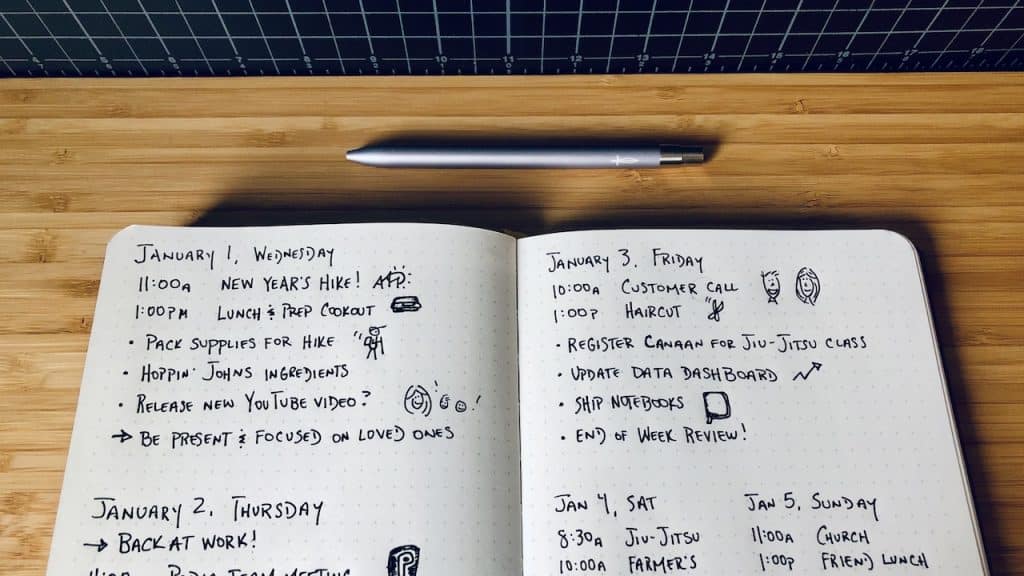 January 1, Wednesday
11:00a New Year's Hike!
1:00pm Lunch & Prep Cookout
• Pack supplies for hike
• Hoppin' Johns ingredients
• Release new YouTube video?
→ Be present & focused on loved ones
January 2, Thursday
→ Back at work!
Team Meeting
January 3, Friday
10:00a Customer Call
1:00p Haircut
• Register Canaan for Jiu-Jitsu class
• Update data dashboard
• Ship notebooks
• End of week review!
Jan 4, Sat
8:30a Jiu-Jitsu
10:00a Farmer's
Jan 5, Sunday
11:00a Church
1:00p Friend Lunch
9
10
11
12
13
14
15
16
17